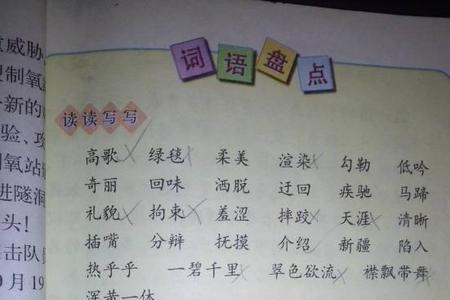 词语盘点
读读写写
高歌 绿毯 柔美 渲染 勾勒 低吟
奇丽 回味 洒脱 迂回 疾驰 马蹄
礼貌 拘束 羞涩 摔跤 天涯 清晰
插嘴 分辩 抚摸 介绍 新疆 陷入
热乎乎 一碧千里 翠色欲流 襟飘带舞
浑黄一体
威胁
制氧
新的
验、攻
氧站
进隧洞
头!
击队
月19